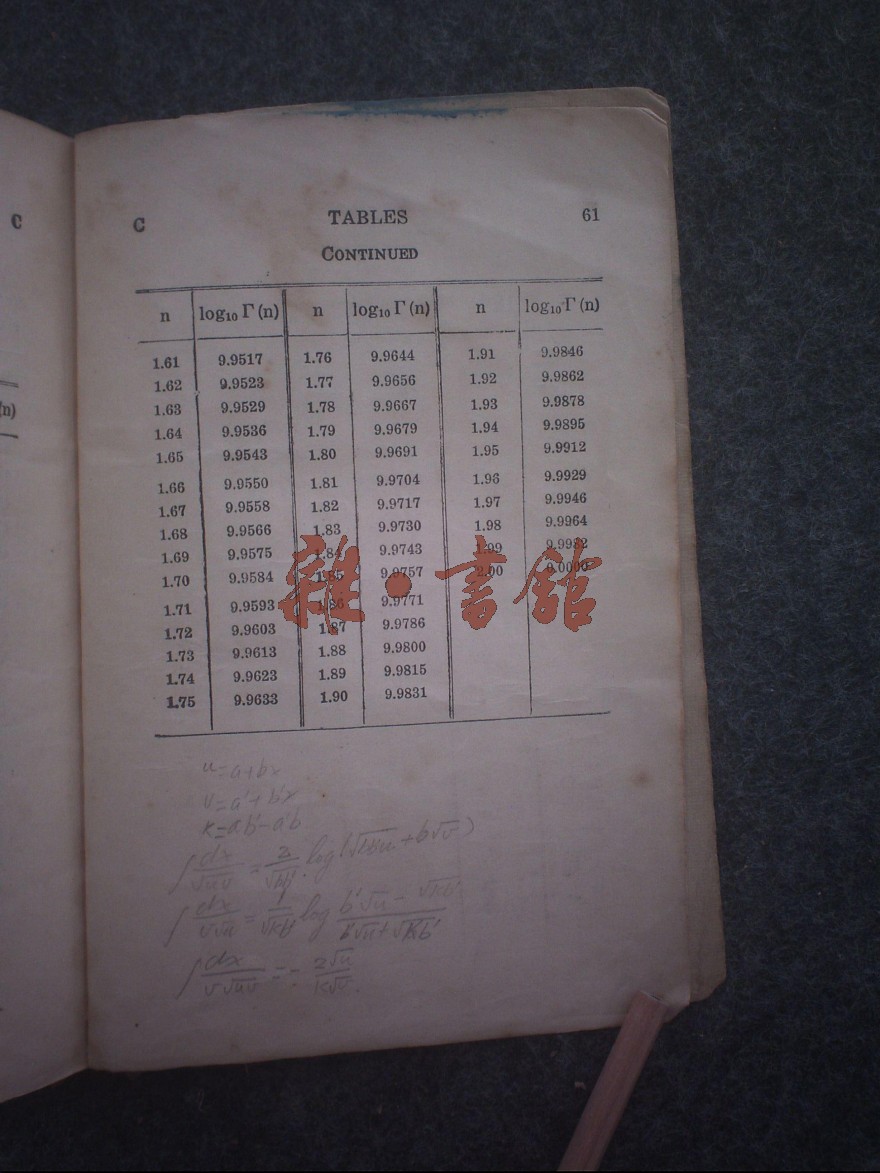 C
C TABLES 61
CONTINUED
n log₁₀ Γ (n) n log₁₀ Γ (n) n log₁₀ Γ (n)
(n)
1.61 9.9517 1.76 9.9644 1.91 9.9846
1.62 9.9523 1.77 9.9656 1.92 9.9862
1.63 9.9529 1.78 9.9667 1.93 9.9878
1.64 9.9536 1.79 9.9679 1.94 9.9895
1.65 9.9543 1.80 9.9691 1.95 9.9912
1.66 9.9550 1.81 9.9704 1.96 9.9929
1.67 9.9558 1.82 9.9717 1.97 9.9946
1.68 9.9566 1.83 9.9730 1.98 9.9964
1.69 9.9575 1.84 9.9743 1.99 9.9982
1.70 9.9584 1.85 9.9757 2.00 0.0000
1.71 9.9593 1.86 9.9771
1.72 9.9603 1.87 9.9786
1.73 9.9613 1.88 9.9800
1.74 9.9623 1.89 9.9815
1.75 9.9633 1.90 9.9831
雜·書館
u=a+bx
v=a'+b'x
k=ab'-a'b
∫dx/√uv = 2/√bb' log(√bb'u+b√v)
∫dx/v√u = 1/√kb' log b'√u-√kb'/b'√u+√kb'
∫dx/v√uv = -2√u/k√v.